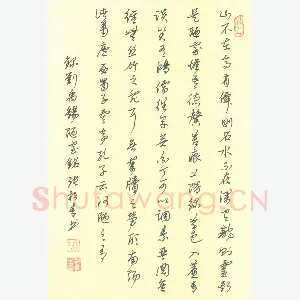 山不在高有僊則名水不在深有龍則靈斯
是陋室惟吾德馨苔痕上階綠草色入簾青
談笑有鴻儒往來無白丁可以調素琴閱金
經無絲竹之亂耳無案牘之勞形南陽
諸葛廬西蜀子雲亭孔子云何陋之有
錄劉禹錫陋室銘張書
Shufawang.CN